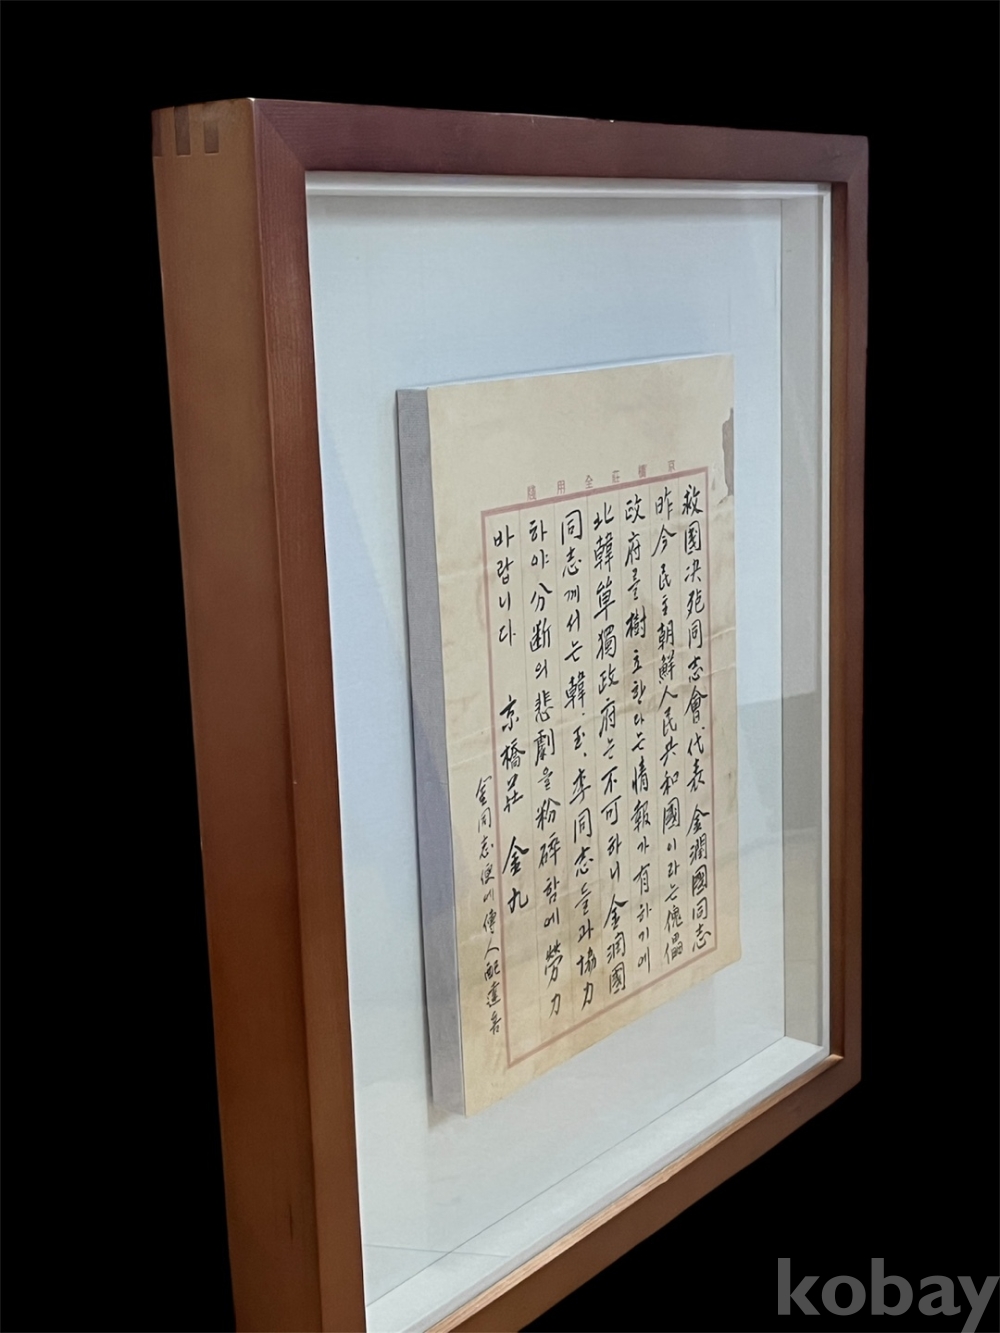 京橋莊全用牋
救國決死同志會代表 金潤國同志
昨今 民主朝鮮人民共和國이라는 傀儡
政府를 樹立한다는 情報가 有하기에
北韓單獨政府는 不可하니 金潤國
同志께서는 韓、玉、李同志들과 協力
하야 分斷의 悲劇을 粉碎함에 勞力
바랍니다 京橋莊 金九
金同志便에 傳人配達
kobay